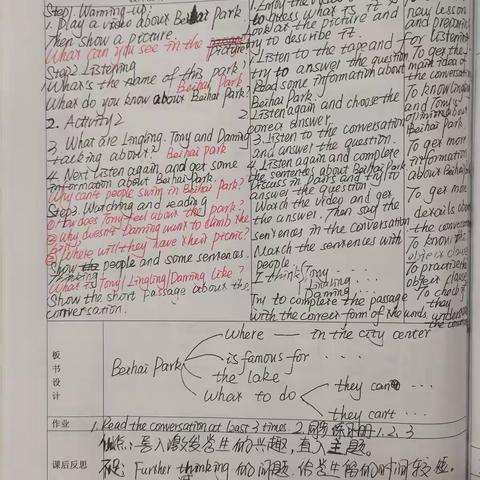 Step1 Warming-up:
1. Play a video about Beihai Park
Then show a picture.
What can you see in the picture
Step2 Listening
What's the name of this park?
Beihai Park
What do you know about Beihai Park?
2. Activity2
3. What are Lingling, Tony and Daming
talking about? Beihai Park
4. Next listen again and get some
information about Beihai Park.
Why can't people swim in Beihai Park?
Step3. Watching and reading
① How does Tony feel about the park?
② Why doesn't Daming want to climb the
③ Where will they have their picnic?
Show people and some sentences.
What is Tony/Lingling/Daming like?
Show the short passage about the
conversation.
1. Enjoy the video and try
to guess what is it
Look at the picture and
try to describe it.
Listen to the tape and
try to answer the question
Read some information about
Beihai Park.
2. Listen again and choose the
correct answer.
3. Listen to the conversation
and answer the question.
4. Listen again and complete
the sentences about Beihai Park
Discuss in pairs and try to
answer the question
Watch the video and get
the answer. Then read the
sentences in the conversation
Match the sentences with
people.
I think Tony ...
Lingling ...
Daming ...
Try to complete the passage
with the correct form of the words.
new lesson
and preparing
for listening
To get the
main idea of
the conversation
To know Lingling
and Tony's
opinions about
Beihai Park
To get more
information
about Beihai Park
To get more
details about
the conversation
To know the
object clause
To practise the
object clause
To check if
they
understand
板书设计
Beihai Park
where — in the city center
is famous for ...
the lake
what to do
they can ...
they can't ...
作业
1. Read the conversation at least 3 times 2. 同步练习册 1.2.3
课后反思
优点：导入激发学生的兴趣，直入主题。
不足：Further thinking 的问题，给学生留的时间较短。